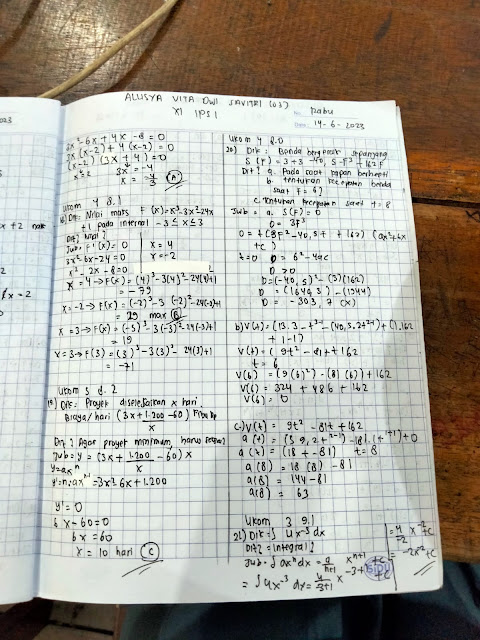 ALUSYA VITA DWI SAVITRI (03)
XI IPS 1
No. Rabu
Date 14-6-2023
3x² - 6x + 4x - 8 = 0
3x (x-2) + 4 (x-2) = 0
(x-2) (3x + 4) = 0
x = 2
3x = -4
x = -4/3 (A)
Ukom 4 8.1
Dik: Nilai maks F(x) = x³ - 3x² - 24x
+1 pada interval -3 ≤ x ≤ 3
Dit: Nilai?
Jwb: F'(x) = 0
x = 4
3x² - 6x - 24 = 0
x = -2
x² - 2x - 8 = 0
x = 4 → F(x) = (4)³ - 3(4)² - 24(4)+1
= -79
x = -2 → F(x) = (-2)³ - 3 (-2)² - 24(-2)+1
= 29 max (B)
x = 3 → F(x) = (-3)³ - 3(-3)² - 24(-3)+1
= 19
x = 3 → F(3) = (3)³ - 3(3)² - 24(3)+1
= -71
Ukom 3 d. 2
Dik: Proyek diselesaikan x hari
Biaya/hari (3x + 1.200/x - 60)
Dit: Agar proyek minimum, harus
Jwb: y = (3x + 1.200/x - 60) x
y = axⁿ
y' = n.axⁿ⁻¹ = 3x² 6x + 1.200
y' = 0
6x - 60 = 0
6x = 60
x = 10 hari (C)
Ukom 4 8.0
20) Dik: Benda bergerak sepanjang
Dit: a. Pada saat kapan berhenti
b. tentukan kecepatan benda
saat t = 6
c. Tentukan percepatan saat t = 8
Jwb: a. S(t) = 0
t = 0
D = b² - 4ac
D > 0
D = (-40,5)² - (3) (162)
D = (1640,3) - (1944)
D = -303,7 (x)
V(t) = (9t² - 81t + 162
t = 6
V(6) = (9(6)² - (81)(6) + 162
V(6) = 324 + 486 + 162
V(6) = 0
c) V(t) = 9t² - 81t + 162
a(t) = (18t - 81) t = 8
a(8) = 18 (8) - 81
a(8) = 144 - 81
a(8) = 63
Ukom 3 9.1
21) Dik = ∫ 4x⁻³ dx
Dit = integral!
Jwb = ∫ axⁿ dx = a/n+1 xⁿ⁺¹ + c
= ∫ 4x⁻³ dx = 4/-3+1 x⁻³⁺¹ + c
= 4/-2 x⁻² + c
= -2x⁻² + c